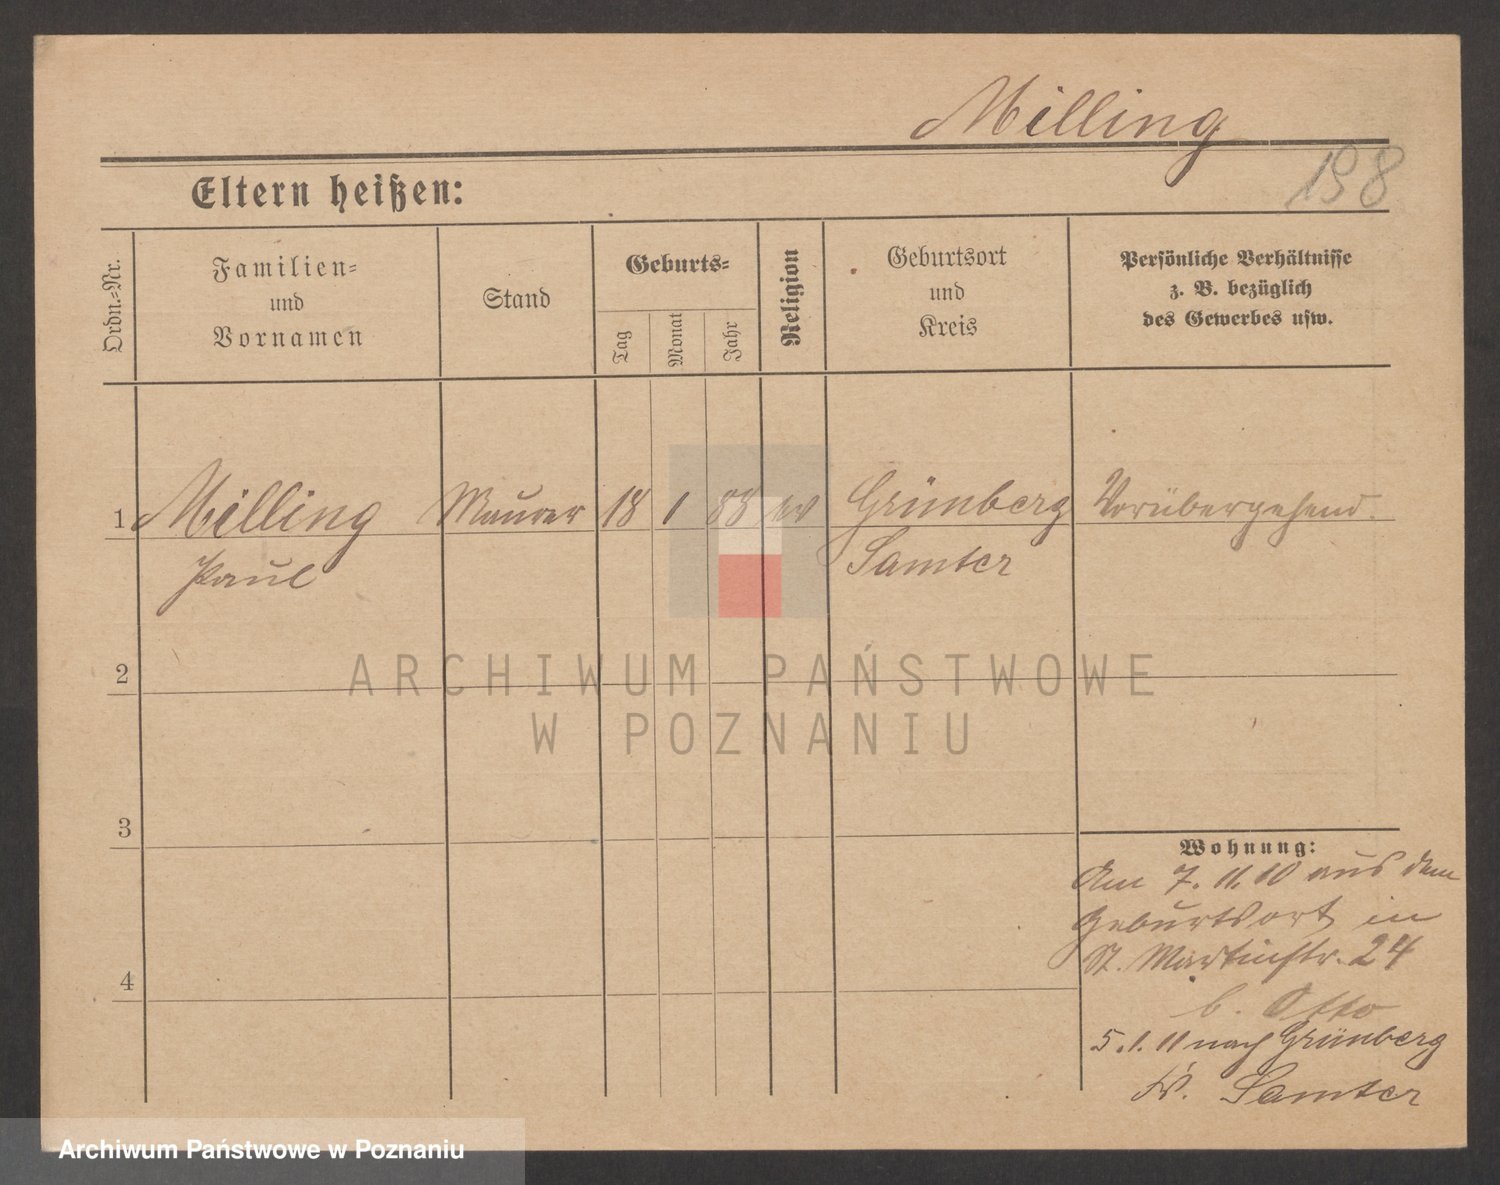 Milling
198
Eltern heißen:
Ordn.-Nr.
Familien-
und
Vornamen
Stand
Geburts-
Tag
Monat
Jahr
Religion
Geburtsort
und
Kreis
Persönliche Verhältnisse
z. B. bezüglich
des Gewerbes usw.
1 Milling Maurer 18 1 88 ev Grünberg Vorübergehend.
Paul Samter
2
3
4
Wohnung:
Am 7. 11. 10 aus dem
Geburtsort in
St. Martinstr. 24
b. Otto
5. 1. 11 nach Grünberg
Kr. Samter
ARCHIWUM PAŃSTWOWE
W POZNANIU
Archiwum Państwowe w Poznaniu